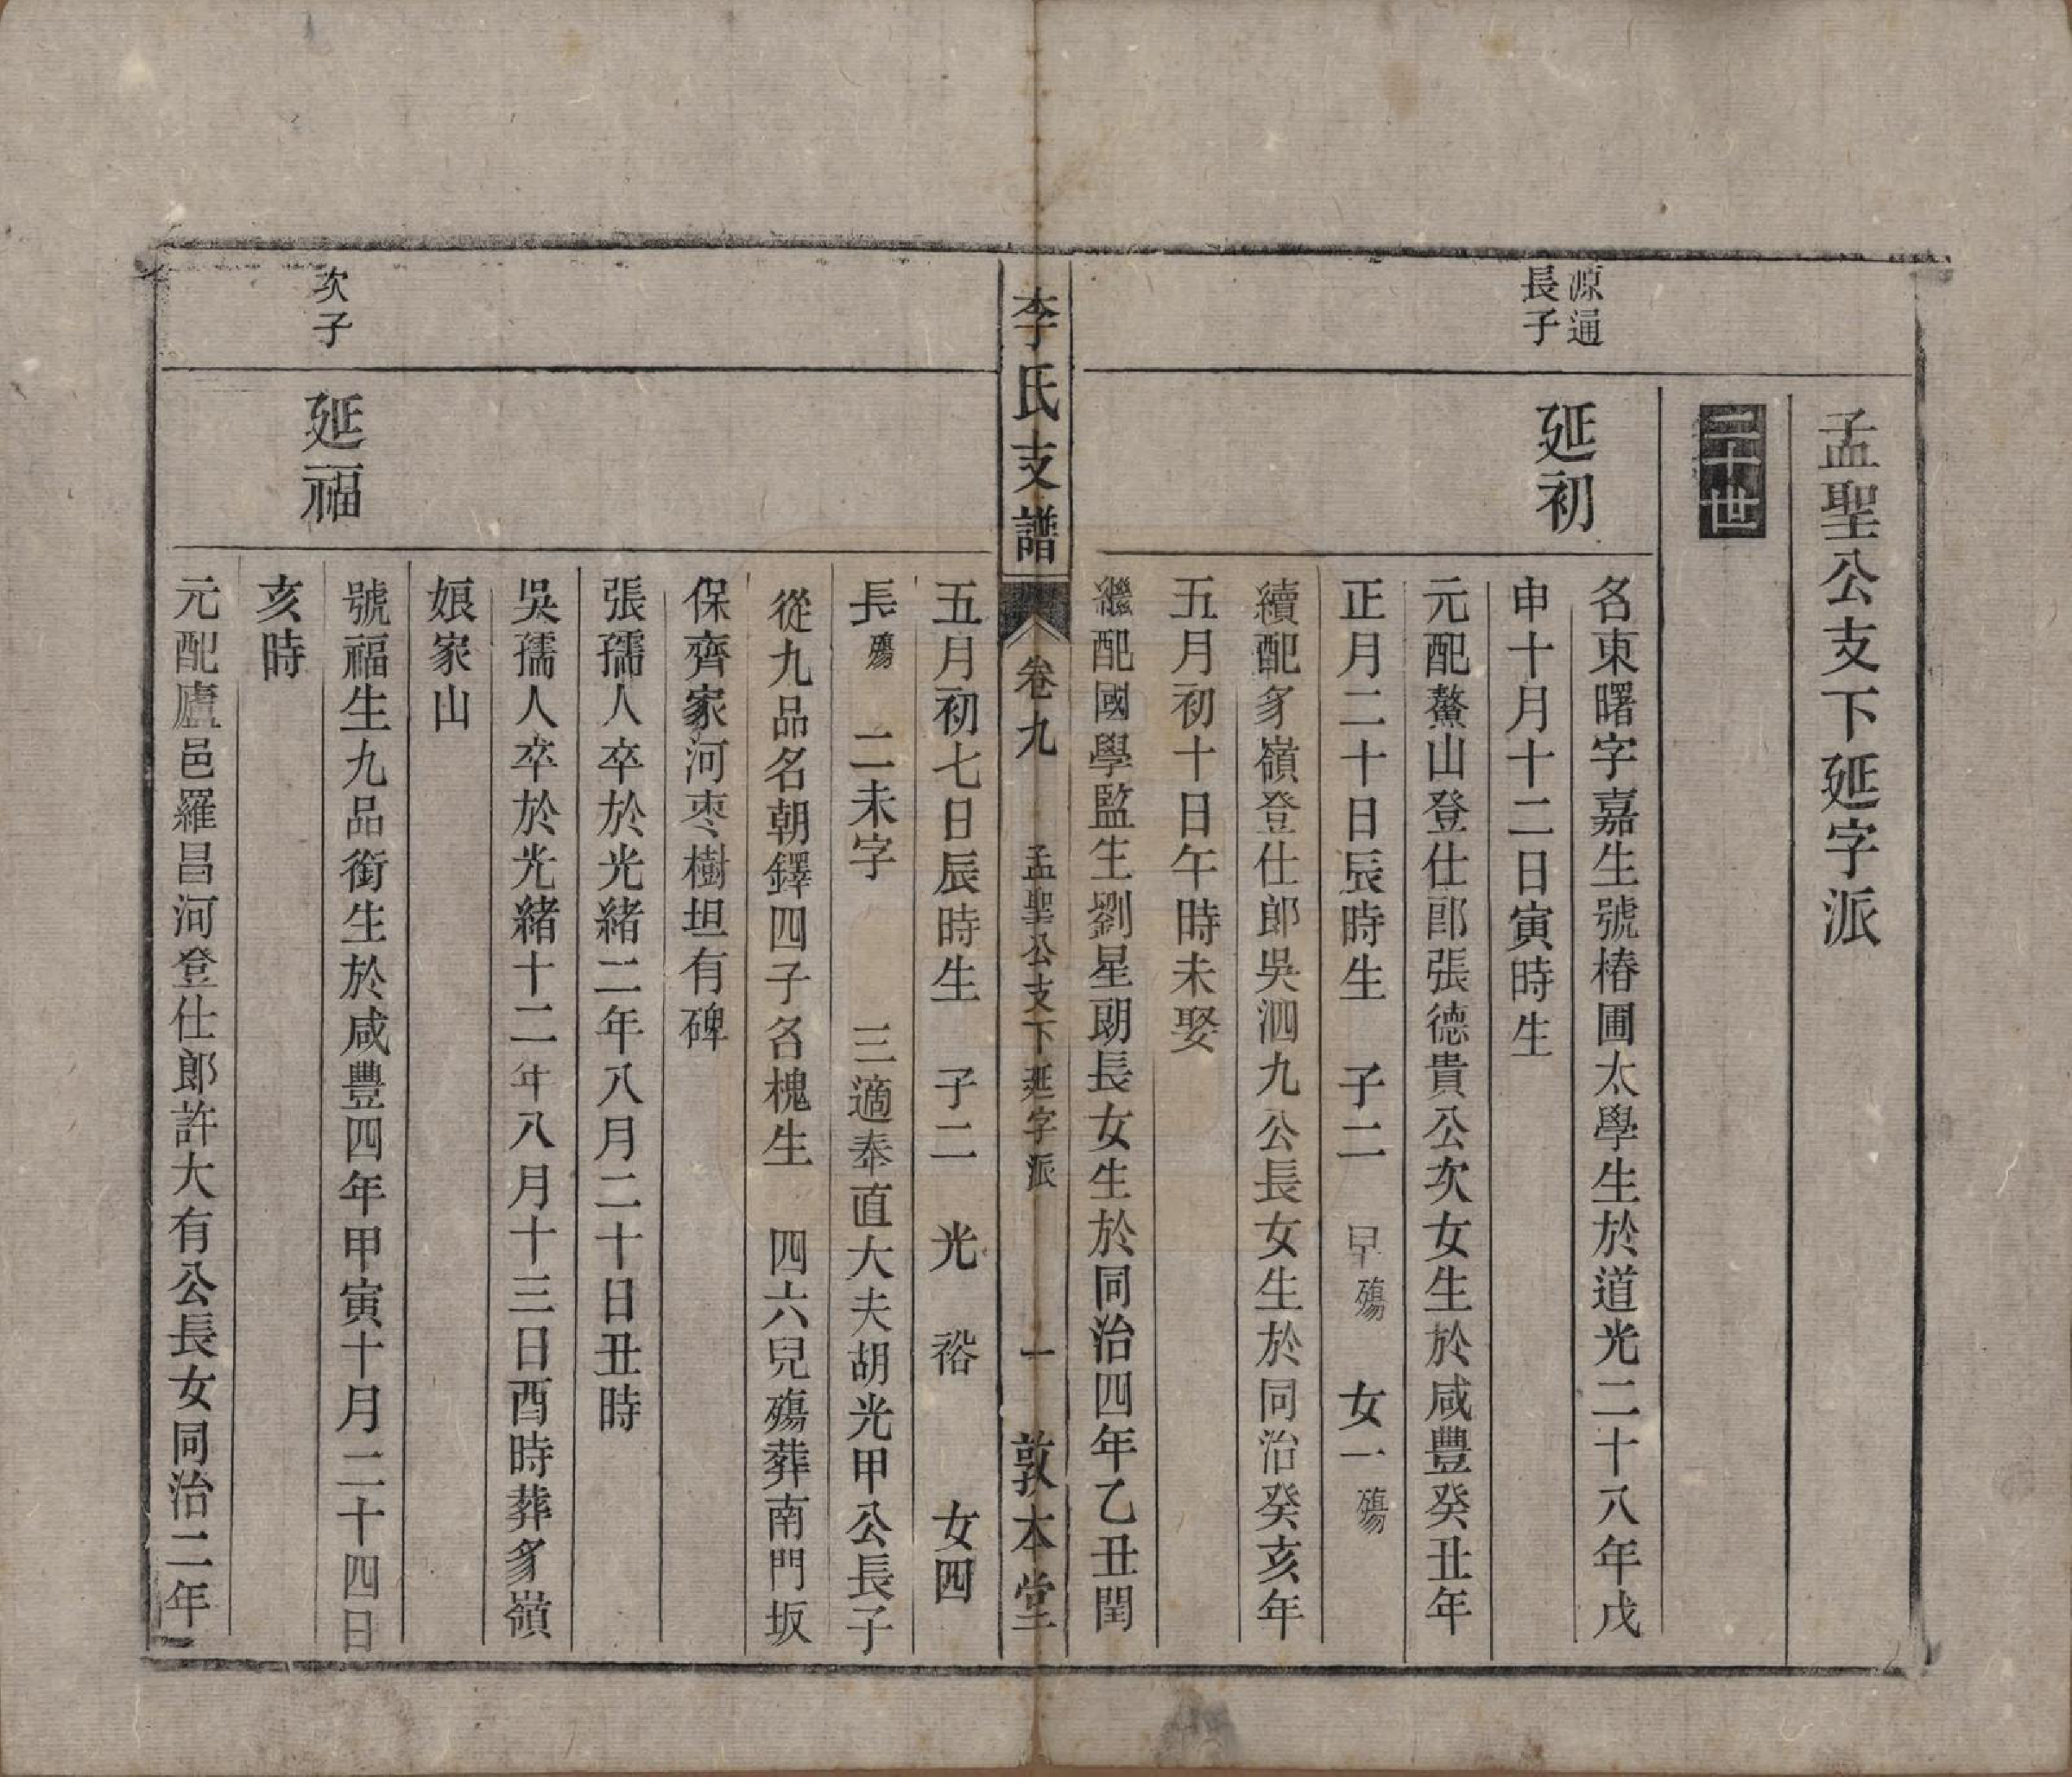 孟聖公支下延字派
二十世
源通
長子
延初
名東曙字嘉生號椿圃太學生生於道光二十八年戊
申十月十二日寅時生
元配鰲山登仕郎張德貴公次女生於咸豐癸丑年
正月二十日辰時生 子二 早殤 女一殤
續配豸嶺登仕郎吳泗九公長女生於同治癸亥年
五月初十日午時未娶
繼配國學監生劉星朗長女生於同治四年乙丑閏
李氏支譜 卷九 孟聖公支下延字派 一 敦本堂
五月初七日辰時生 子二 光裕 女四
長殤 二未字 三適奉直大夫胡光甲公長子
從九品名朝鐸四子名槐生 四六兒殤葬南門坂
保齊家河枣樹坦有碑
張孺人卒於光緒二年八月二十日丑時
吳孺人卒於光緒十二年八月十三日酉時葬豸嶺
娘家山
次子
延福
號福生九品銜生於咸豐四年甲寅十月二十四日
亥時
元配廬邑羅昌河登仕郎許大有公長女同治二年